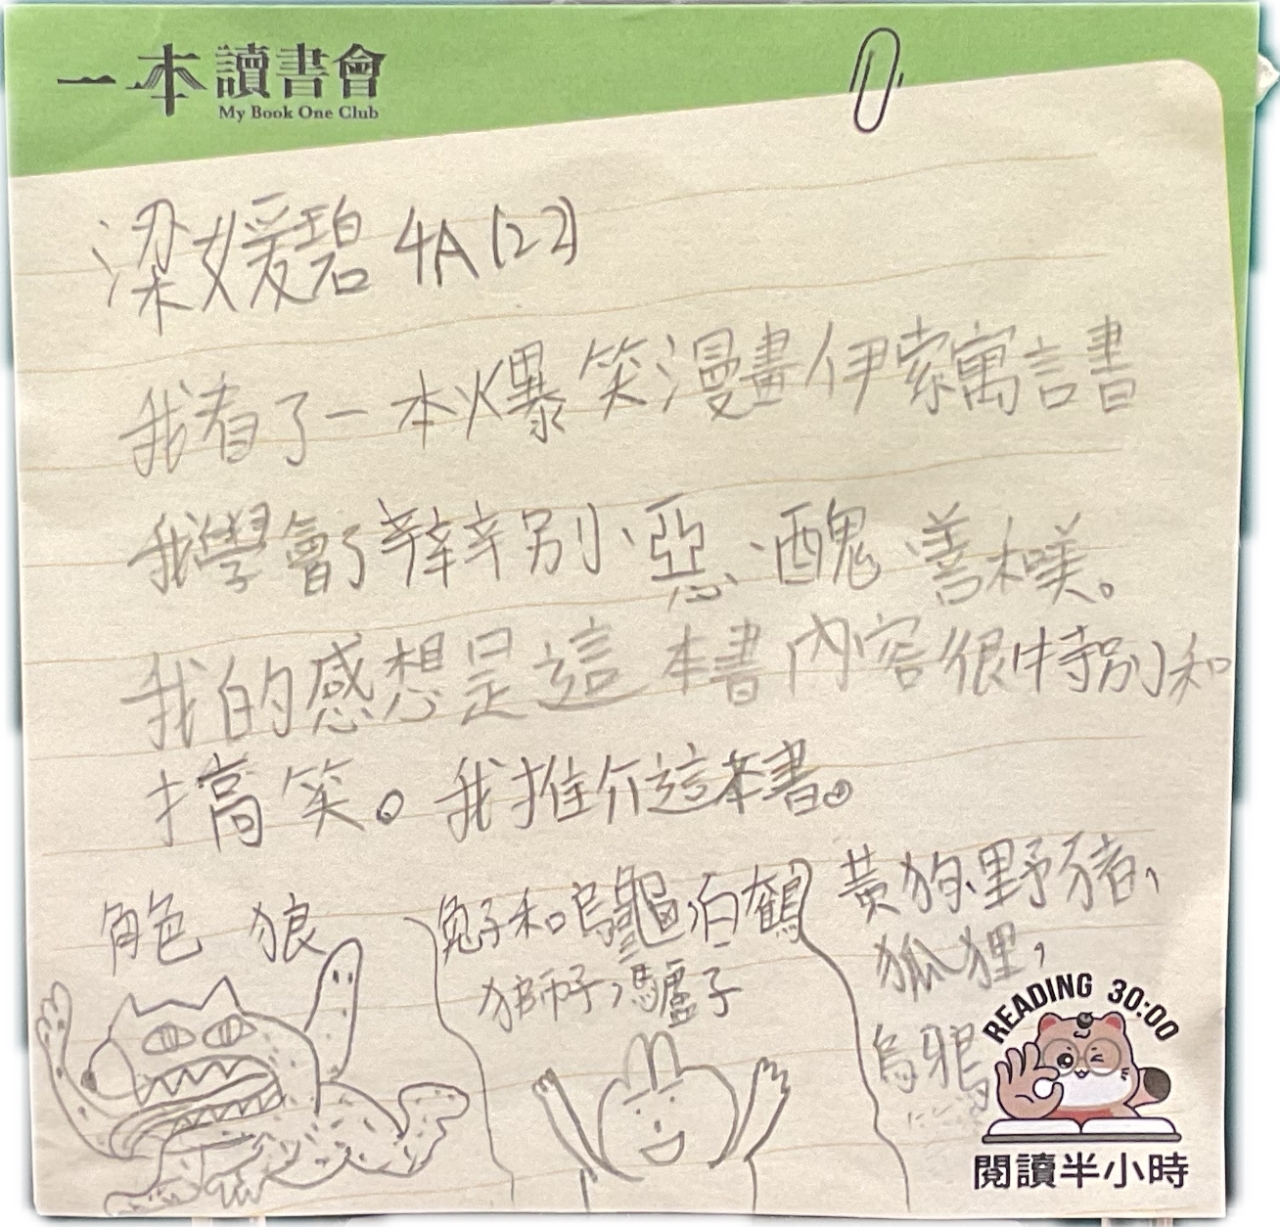 一本讀書會
My Book One Club
梁媛碧 4A(22)
我看了一本爆笑漫畫伊索寓言書
我學會了辨別、惡、醜、善和美。
我的感想是這本書內容很特別和
搞笑。我推介這本書。
角色 狼
兔子和烏龜,白鶴
獅子,驢子
黃狗,野豬,
狐狸,
烏鴉
READING 30:00
閱讀半小時